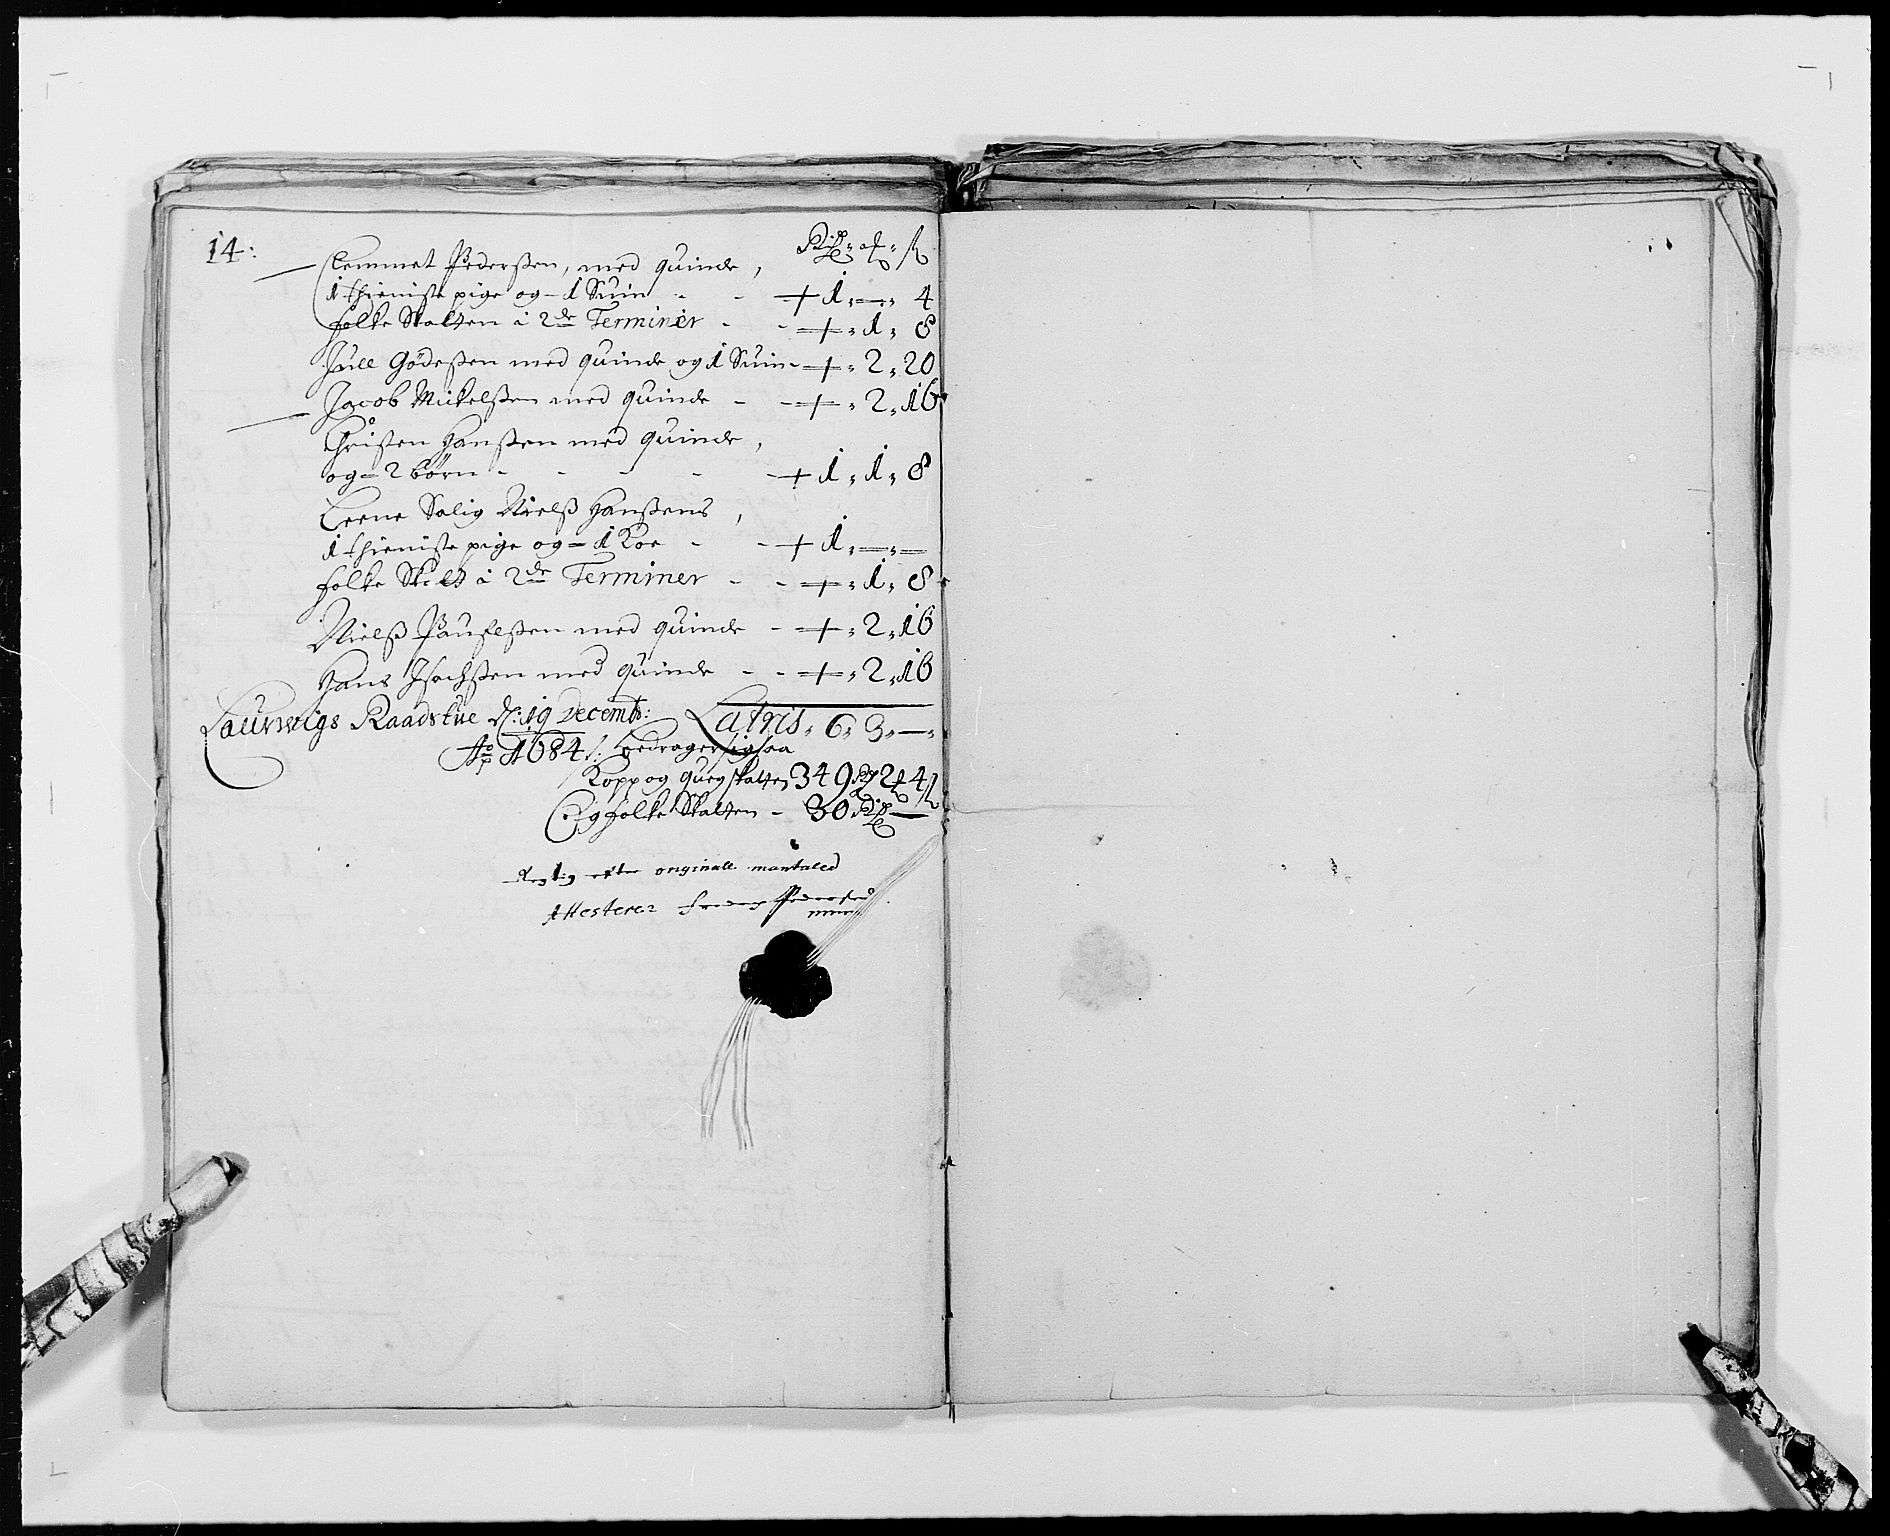 14:
Rdr. ort. ß
Clemmet Pederßen, med quinde,
1 thieniste pige og - 1 Suin - - + 1 „ — „ 4
folke Skatten i 2de Terminer - - + „ 1 „ 8
Jull Gödeßen med quinde og 1 Suin - + „ 2 „ 20
Jacob Mickelßen med quinde - - + „ 2 „ 16
Christen Hanßen med quinde,
og - 2 börn - - - - + 1 „ 1 „ 8
Leene Salig Nielß Hanßens,
1 thieniste pige og - 1 Koe - - + 1 „ — „ —
folke Skatt i 2de Terminer - - + „ 1 „ 8
Nielß Paufelßen med quinde - + „ 2 „ 16
Hans Isachßen med quinde - - + „ 2 „ 16
Laurwigs Raadstue d: 19 Decemb: Latris „ 6 „ 3 „ — „
Ao 1684 /: bedrager sig saa
Kopp og quegskatten 349 Rdr 2 ort 4 ß
Og folke Skatten - 30 Rdr —
Rigtig efter originall mantalled
Attesterer Pedersen